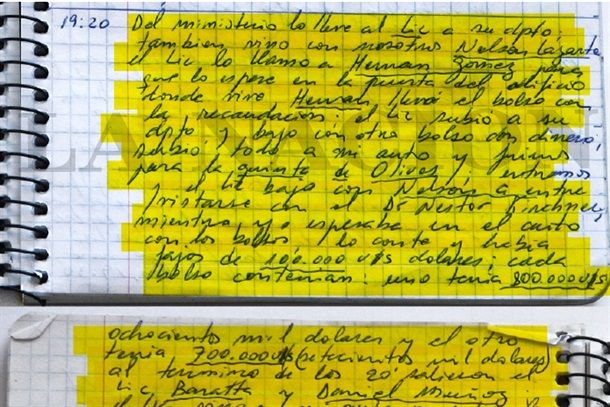 19:20 Del ministerio lo lleve al Lic a su dpto,
tambien vino con nosotros Nelson Lazarte
el Lic lo llamo a Hernan Gomez para
que lo espere en la puerta del edificio
donde vive Hernan llevó el bolso con
la recaudación; el Lic subio a su
dpto y bajo con otro bolso con dinero,
subio todo a mi auto y fuimos
para la quinta de Olivos, entramos
y el Lic bajo con Nelson a entre
vistarse con el Dr Nestor Kirchner,
mientras yo esperaba en el auto
con los bolsos, lo conte y habia
fajos de 100.000 u$s dolares; cada
bolso contenian: uno tenia 800.000u$s
ochocientos mil dolares y el otro
tenia 700.000u$s (setecientos mil dolares)
al termino de los 20' salieron el
Lic, Baratta y Daniel Muñoz y
LA NACION